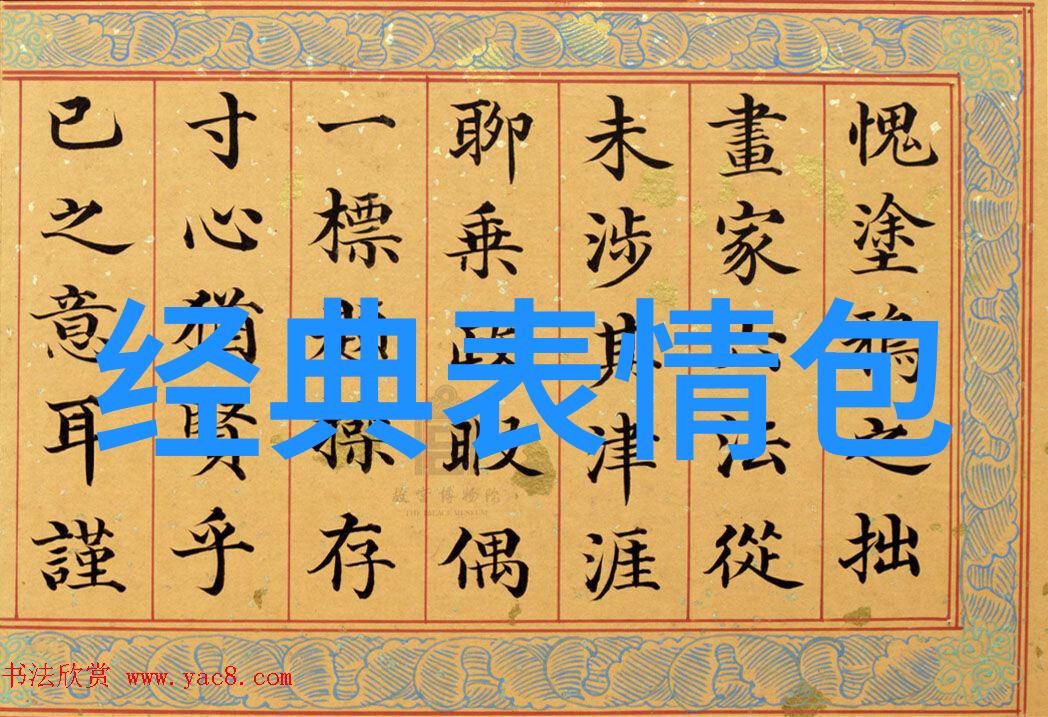 愧塗鴉之拙
畫家六法從
未涉其津涯
聊乘政暇偶
一標操存
寸心猶賢乎
已之意耳謹
经典表情包
故宫博物院
THE PALACE MUSEUM
书法欣赏 www.yac8.com